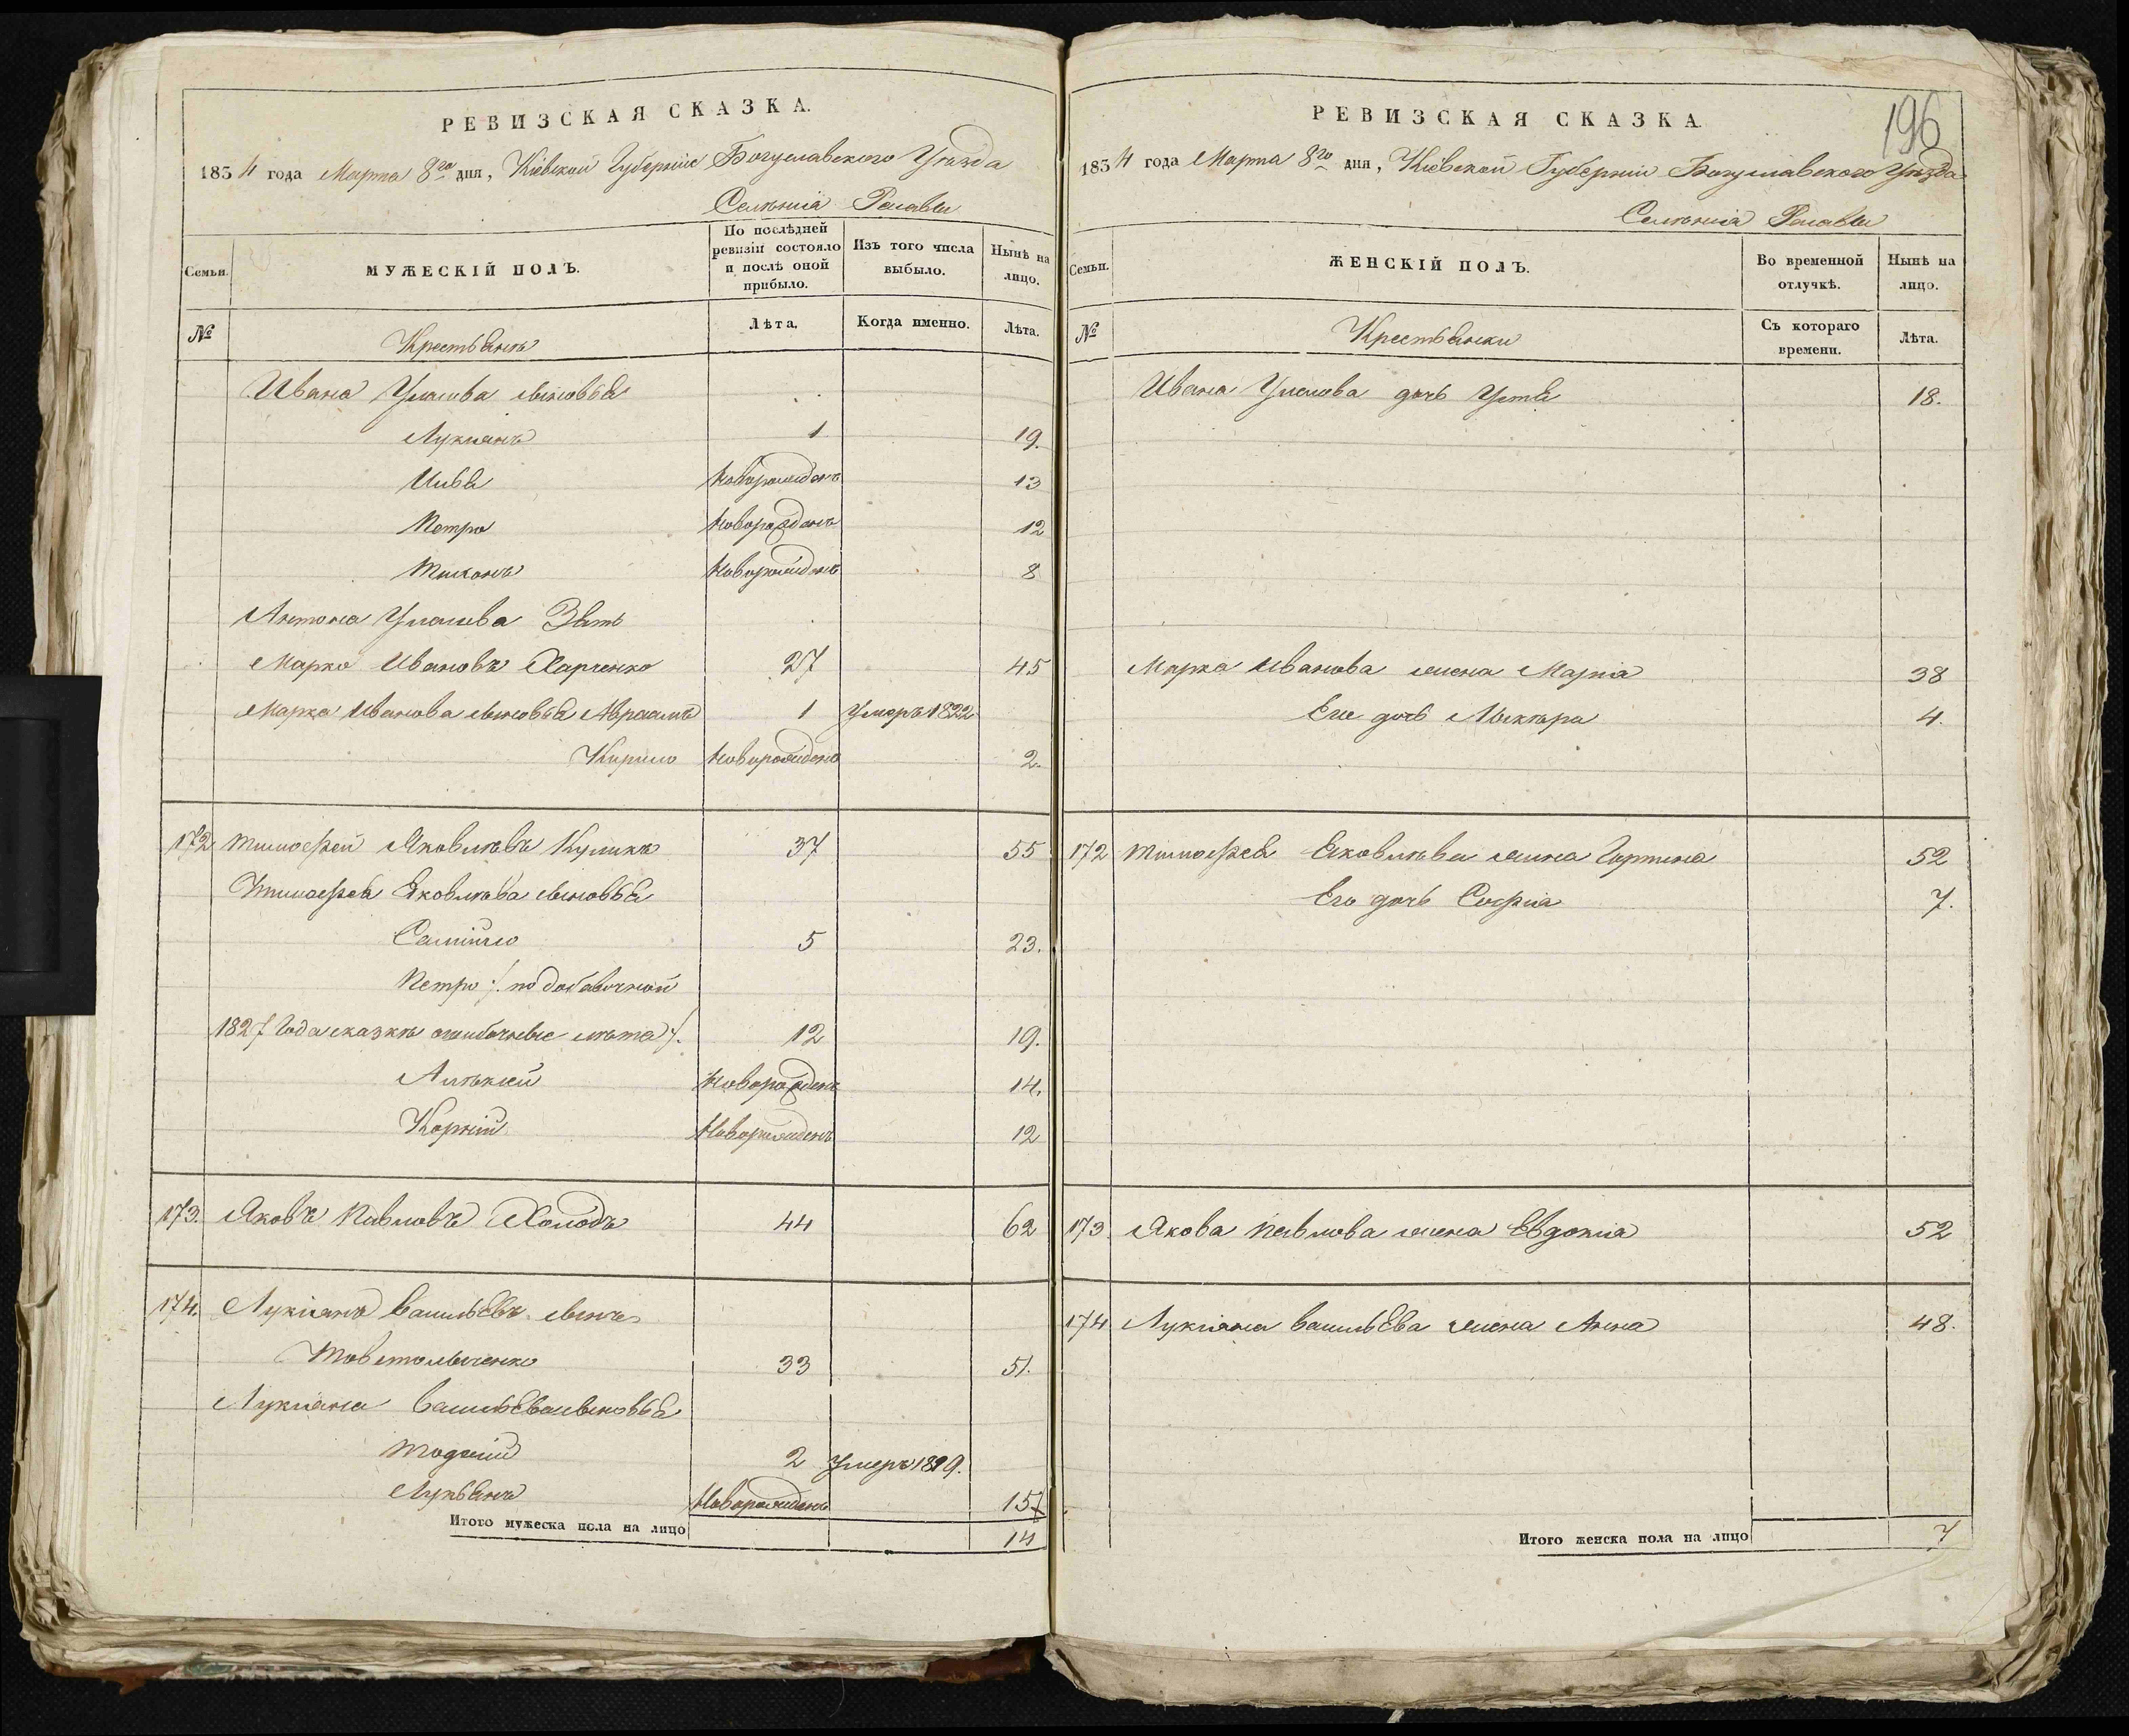 РЕВИЗСКАЯ СКАЗКА.
1834 года Марта 8го дня, Кіевской Губерніи Богуславского Уѣзда
Селѣнія
Семьи.
МУЖЕСКІЙ ПОЛЪ.
По послѣдней ревизіи состояло и послѣ оной прибыло.
Изъ того числа выбыло.
Нынѣ на лицо.
№
Крестьянѣ
Лѣта.
Когда именно.
Лѣта.
Ивана сыновья
Лукіянъ 1 19.
Новорожденъ 13
Петро Новорожденъ 12
Новорожденъ 8
Антона Зять
Марко Ивановъ Харченко 27 45
Марка Иванова сыновья Авраамъ 1 Умеръ 1822
Кирило Новорожденъ 2.
172 Тимофей Яковлѣвъ Куликъ 37 55
Тимофея Яковлѣва сыновья
Самійло 5 23.
Петро /: по добавочной
1827 Года сказкѣ ошибочные лѣта :/. 12 19.
Алѣксѣй Новорожденъ 14.
Корній Новорожденъ 12
173. Яковъ Павловъ Холодъ 44 62
174. Лукіянъ Васильевъ сынъ
Товстолыченко 33 51.
Лукіяна Васильева сыновья
2 Умеръ 1819.
Лукьянъ Новорожденъ 15
Итого мужеска пола на лицо 14
РЕВИЗСКАЯ СКАЗКА.
196
1834 года Марта 8го дня, Кіевской Губерніи Богуславского Уѣзда
Селѣнія
Семьи.
ЖЕНСКІЙ ПОЛЪ.
Во временной отлучкѣ.
Нынѣ на лицо.
№
Крестьянки
Съ котораго времени.
Лѣта.
Ивана дочь 18.
Марка Иванова жена Марія 38
Его дочь 4.
172 Тимофея Яковлѣва жена Горпина 52
Его дочь Софія 7.
173. Якова Павлова жена Евдокія 52
174 Лукіяна Васильева жена Анна 48.
Итого женска пола на лицо 7